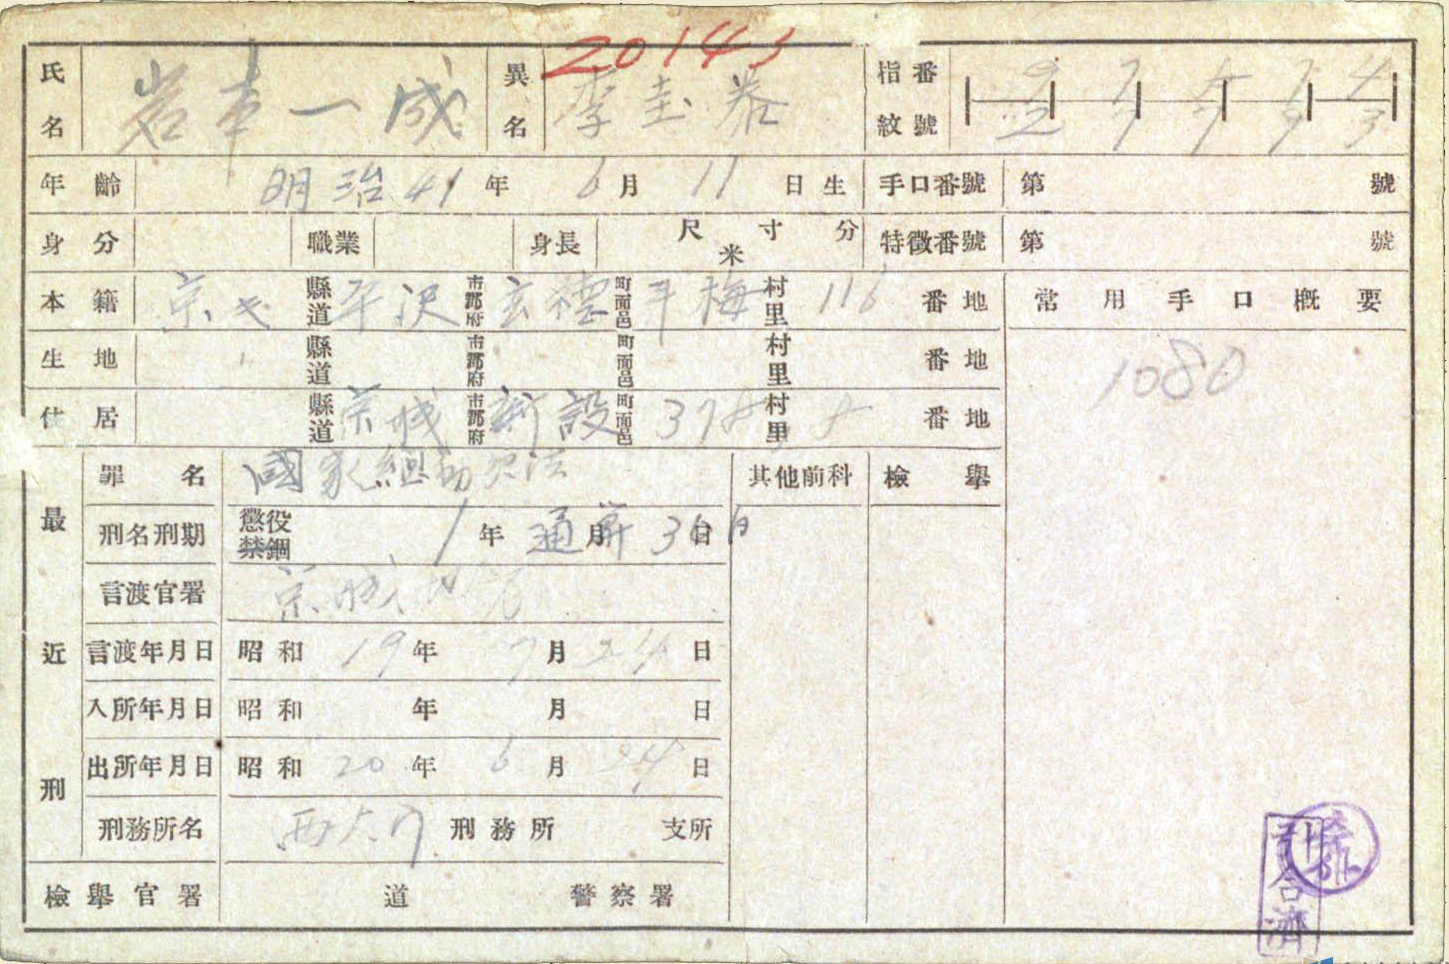 20143
氏名 岩本一成 異名 李圭恭 指紋番號 9 7 5 7 4
2 7 7 9 3
年齡 明治41年6月11日生 手口番號 第 號
身分 職業 身長 尺寸分 米 特徵番號 第 號
本籍 京キ 縣道 平沢 市郡府 玄德 町面邑 平梅 村里 116 番地 常用手口概要
生地 縣道 市郡府 町面邑 村里 番地 1080
住居 縣道 京城 市郡府 新設 町面邑 378 村里 8 番地
最近刑 罪名 國家總動員法 其他前科 檢擧
刑名刑期 懲役 禁錮 1年 月 通算30日 日
言渡官署 京城地
言渡年月日 昭和19年7月24日
入所年月日 昭和 年 月 日
出所年月日 昭和20年6月24日
刑務所名 西大門 刑務所 支所
檢擧官署 道 警察署
濟